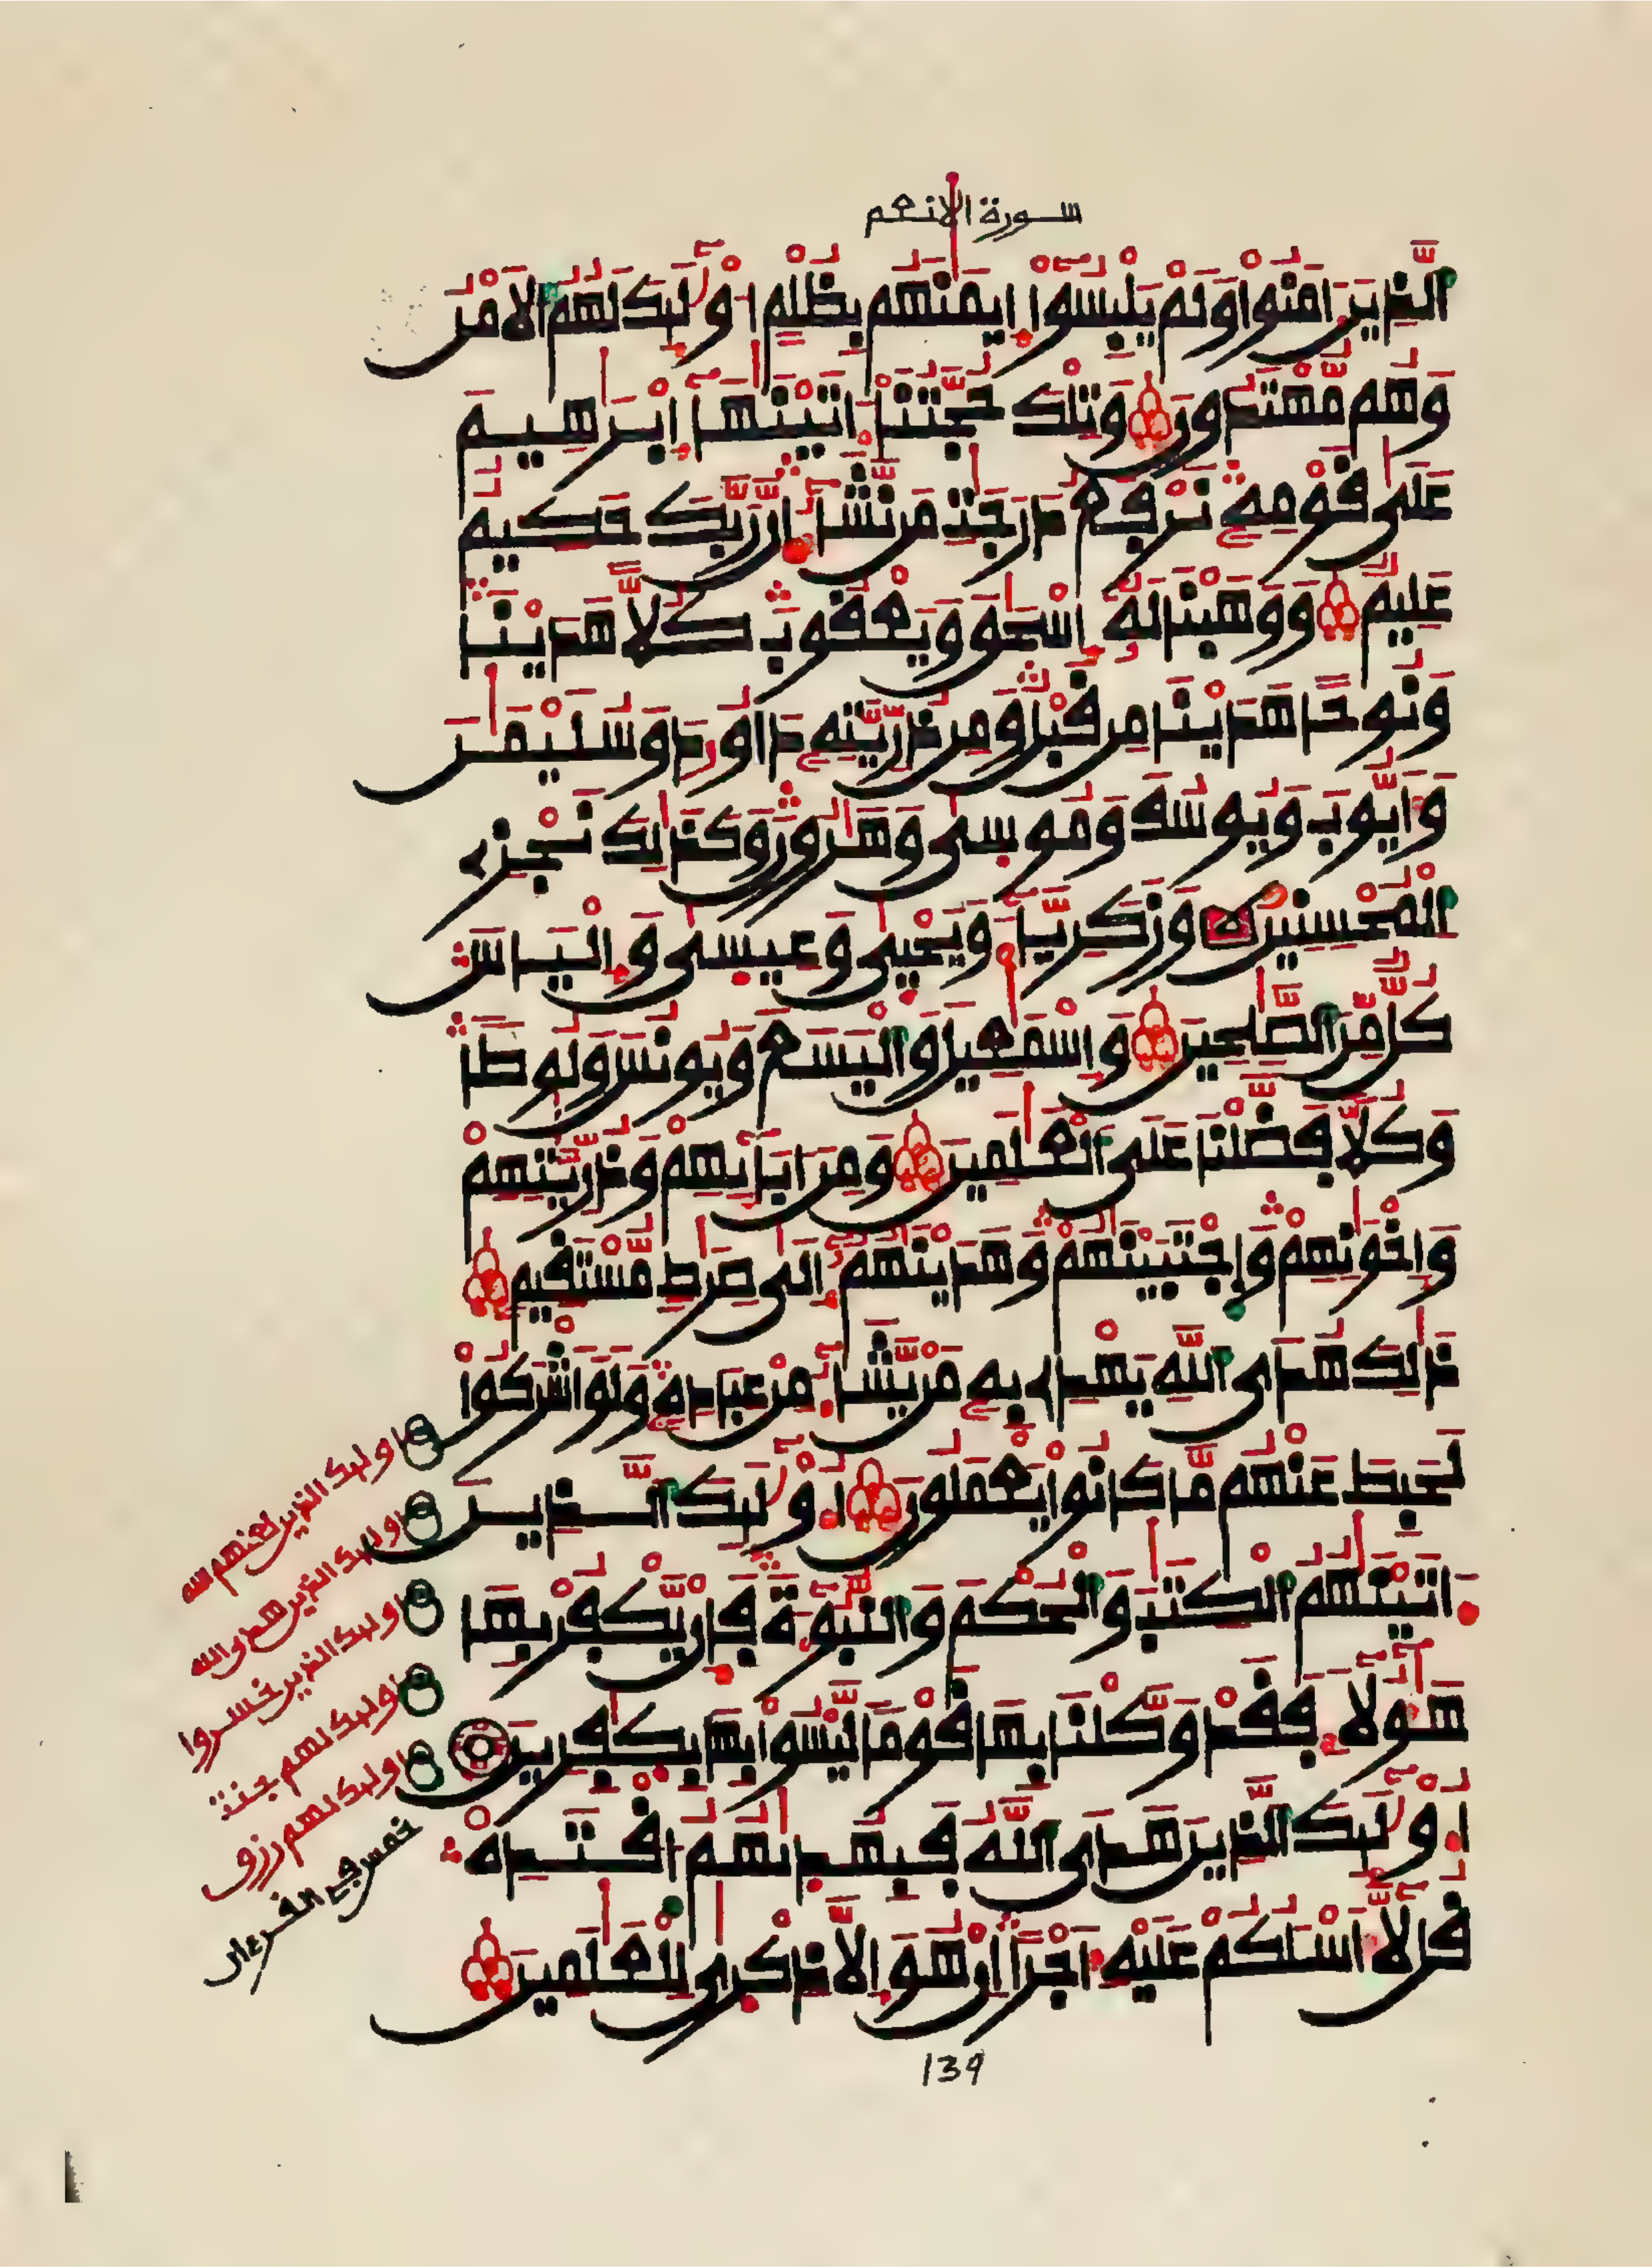 سورة الانعم
اَلذِينَ ءَامَنُواْ وَلَمْ يَلْبِسُوٓاْ إِيمَٰنَهُم بِظُلْمٍ اُوْلَٰٓئِكَ لَهُمُ اُلَامْنُ
وَهُم مُّهْتَدُونَ وَتِلْكَ حُجَّتُنَآ ءَاتَيْنَٰهَآ إِبْرَٰهِيمَ
عَلَىٰ قَوْمِهِۦ نَرْفَعُ دَرَجَٰتِ مَن نَّشَآءُ اِنَّ رَبَّكَ حَكِيمٌ
عَلِيمٌ وَوَهَبْنَا لَهُۥٓ إِسْحَٰقَ وَيَعْقُوبَ كُلّاً هَدَيْنَا
وَنُوحاً هَدَيْنَا مِن قَبْلُ وَمِن ذُرِّيَّتِهِۦ دَاوُۥدَ وَسُلَيْمَٰنَ
وَأَيُّوبَ وَيُوسُفَ وَمُوسَىٰ وَهَٰرُونَ وَكَذَٰلِكَ نَجْزِے
اِلْمُحْسِنِينَ وَزَكَرِيَّآءَ وَيَحْيَىٰ وَعِيسَىٰ وَإِلْيَاسَ
كُلٌّ مِّنَ اَلصَّٰلِحِينَ وَإِسْمَٰعِيلَ وَالْيَسَعَ وَيُونُسَ وَلُوطاً
وَكُلّاً فَضَّلْنَا عَلَى اَلْعَٰلَمِينَ وَمِنَ ءَابَآئِهِمْ وَذُرِّيَّٰتِهِمْ
وَإِخْوَٰنِهِمْ وَاجْتَبَيْنَٰهُمْ وَهَدَيْنَٰهُمُۥٓ إِلَىٰ صِرَٰطٍ مُّسْتَقِيمٍ
ذَٰلِكَ هُدَى اَللَّهِ يَهْدِے بِهِۦ مَنْ يَّشَآءُ مِنْ عِبَادِهِۦ وَلَوَ اَشْرَكُواْ
لَحَبِطَ عَنْهُم مَّا كَانُواْ يَعْمَلُونَ أُوْلَٰٓئِكَ اَلذِينَ
ءَاتَيْنَٰهُمُ اُلْكِتَٰبَ وَالْحُكْمَ وَالنُّبُوٓءَةَ فَإِنْ يَّكْفُرْ بِهَا
هَٰٓؤُلَآءِ فَقَدْ وَكَّلْنَا بِهَا قَوْماً لَّيْسُواْ بِهَا بِكَٰفِرِينَ
أُوْلَٰٓئِكَ اَلذِينَ هَدَى اَللَّهُ فَبِهُدَىٰهُمُ اُقْتَدِهْ
قُل لَّآ أَسْـَٔلُكُمْ عَلَيْهِ أَجْراً اِنْ هُوَ إِلَّا ذِكْرَىٰ لِلْعَٰلَمِينَ
اولىك الذين لعنهم الله
اولىك الذين هدى الله
اولىك الذين خسروا
اولىك لهم جنت
اولىك لهم رزق
خمس في القرءان
139